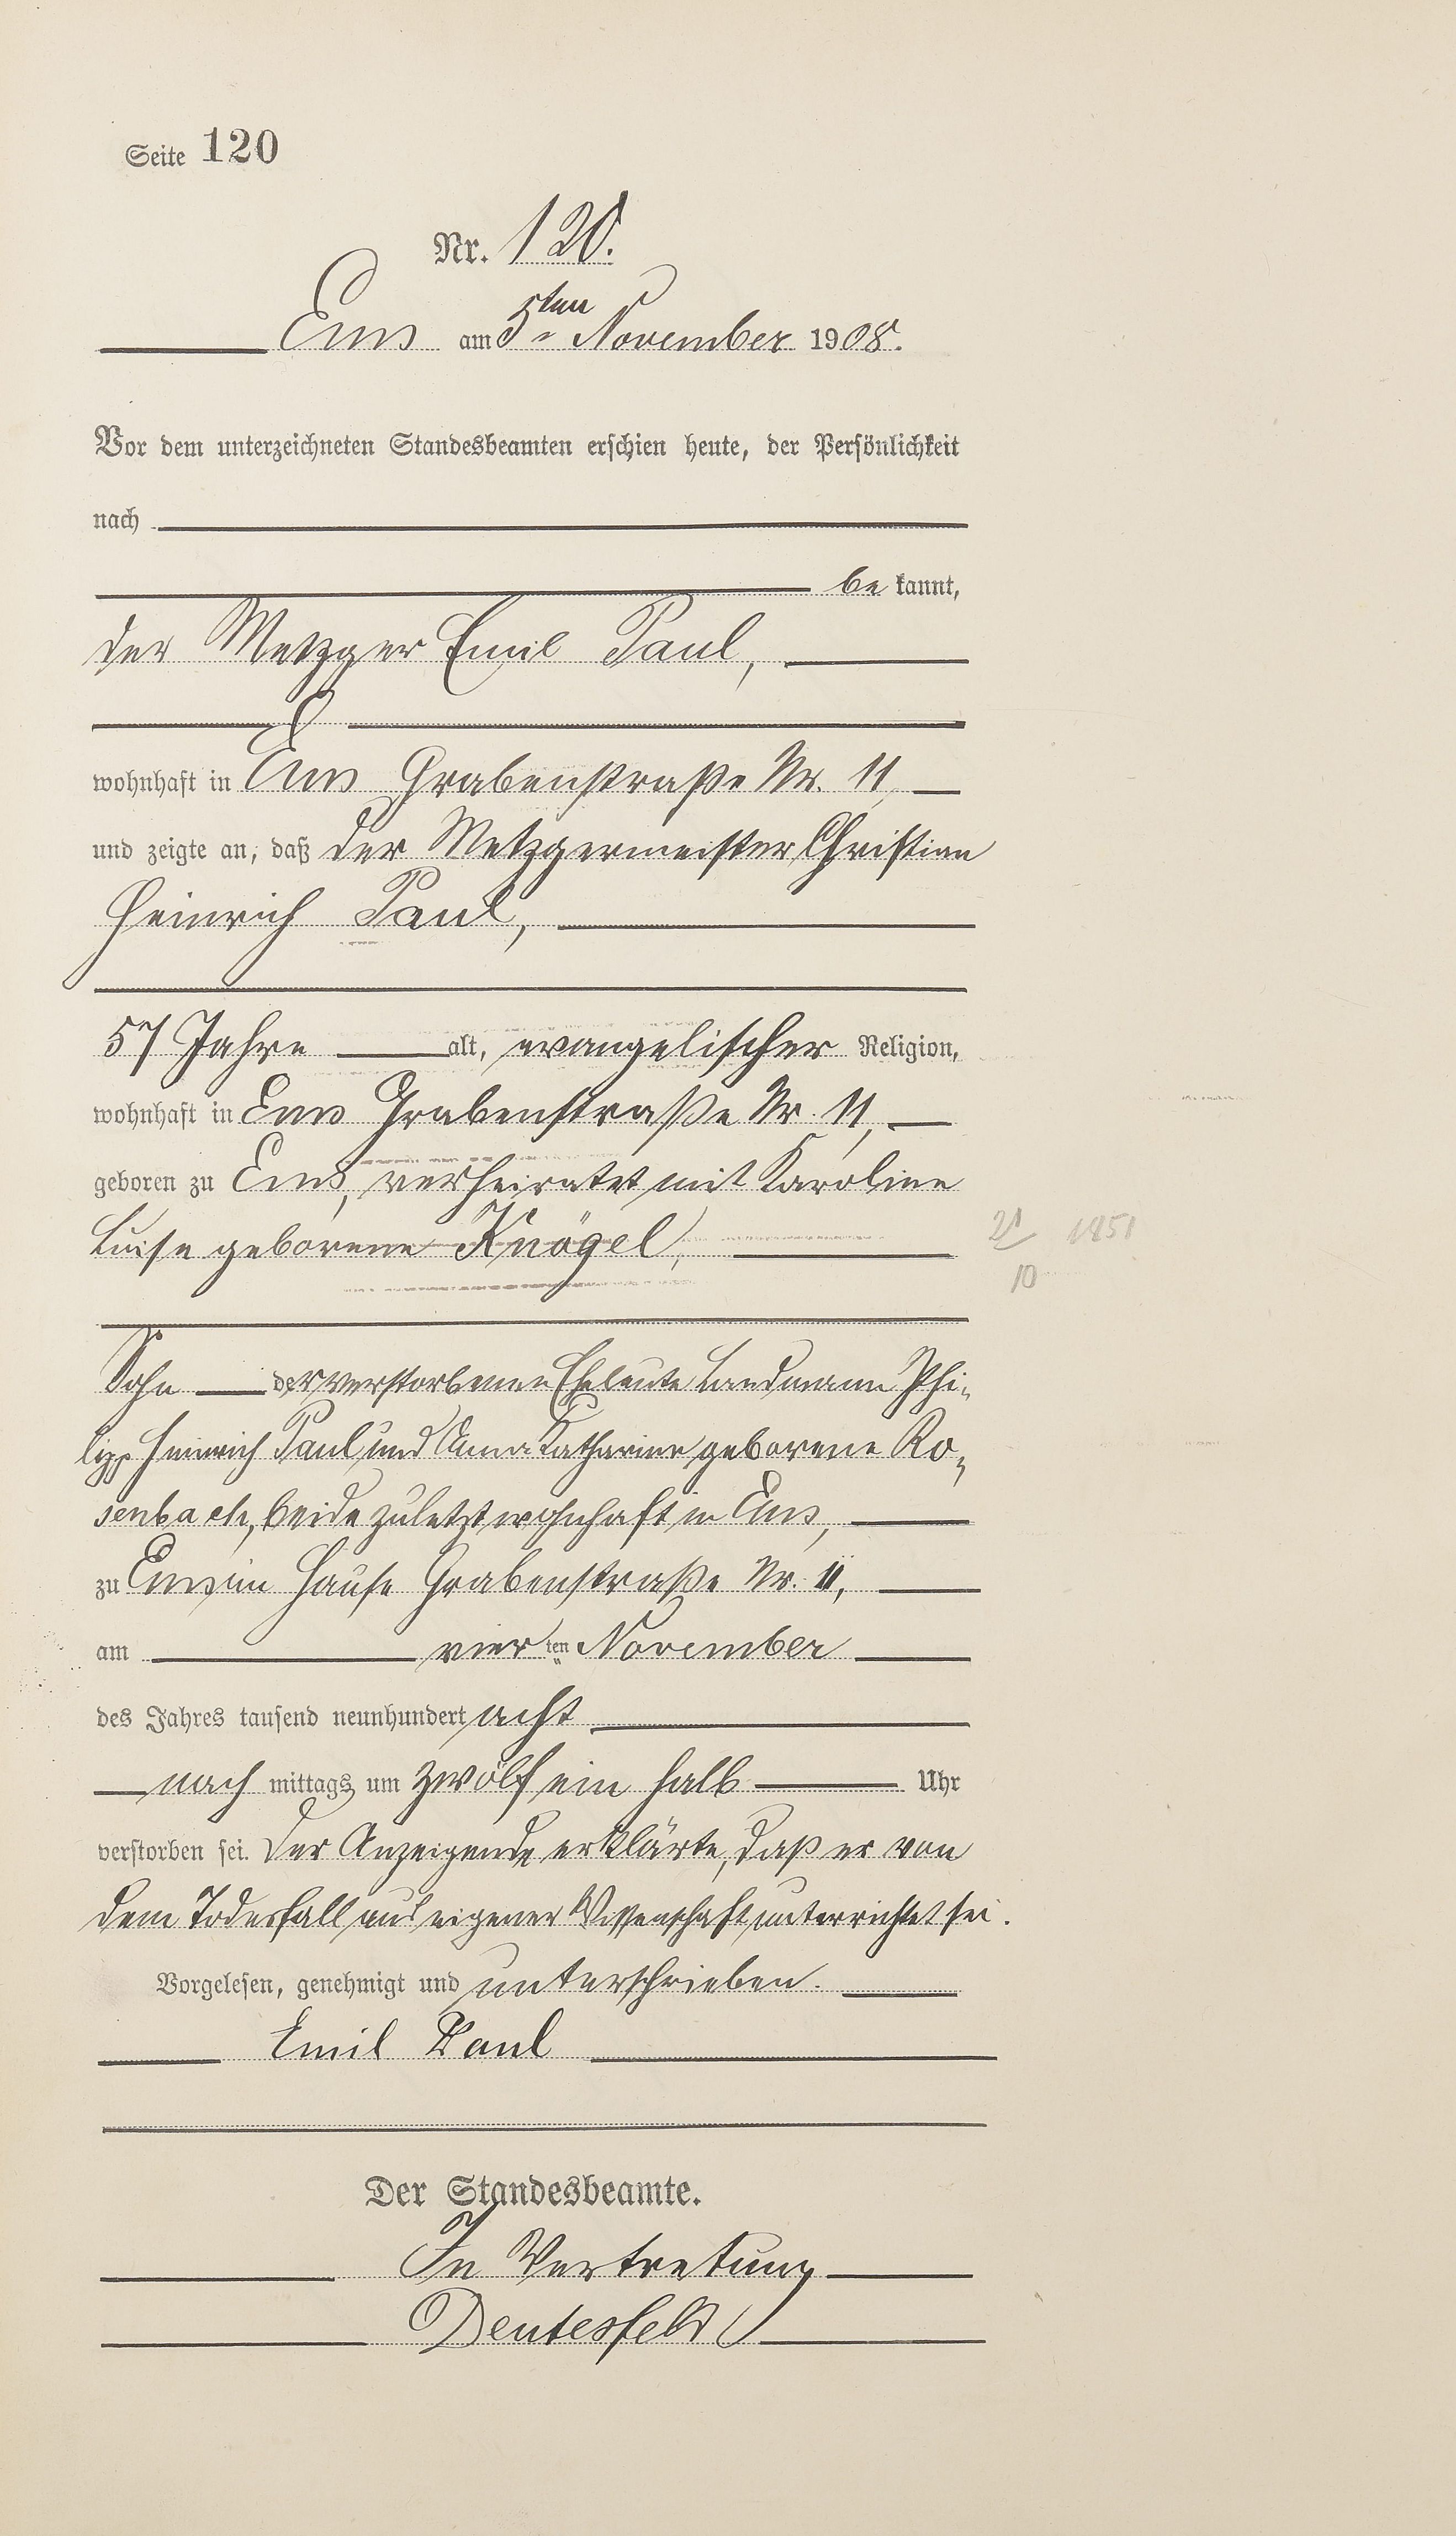 Seite 120
Nr. 120.
Ems am 5ten November 1908.
Vor dem unterzeichneten Standesbeamten erschien heute, der Persönlichkeit
nach
be kannt,
der Metzger Emil Paul,
wohnhaft in Ems Grabenstraße Nr. 11,
und zeigte an, daß der Metzgermeister Christian
Heinrich Paul,
57 Jahre alt, evangelischer Religion,
wohnhaft in Ems Grabenstraße Nr. 11,
geboren zu Ems, verheiratet mit Karoline
Luise geborene Knögel,
21/10 1851
Sohn der verstorbenen Eheleute Landmann Phi-
lipp Heinrich Paul und Anna Katharine geborene Ro-
senbach, beide zuletzt wohnhaft in Ems,
zu Ems im Hause Grabenstraße Nr. 11,
am vier ten November
des Jahres tausend neunhundert acht
nach mittags um zwölf ein halb Uhr
verstorben sei. Der Anzeigende erklärte, daß er von
dem Todesfall aus eigener Wissenschaft unterrichtet sei.
Vorgelesen, genehmigt und unterschrieben.
Emil Paul
Der Standesbeamte.
In Vertretung
Deutesfeld